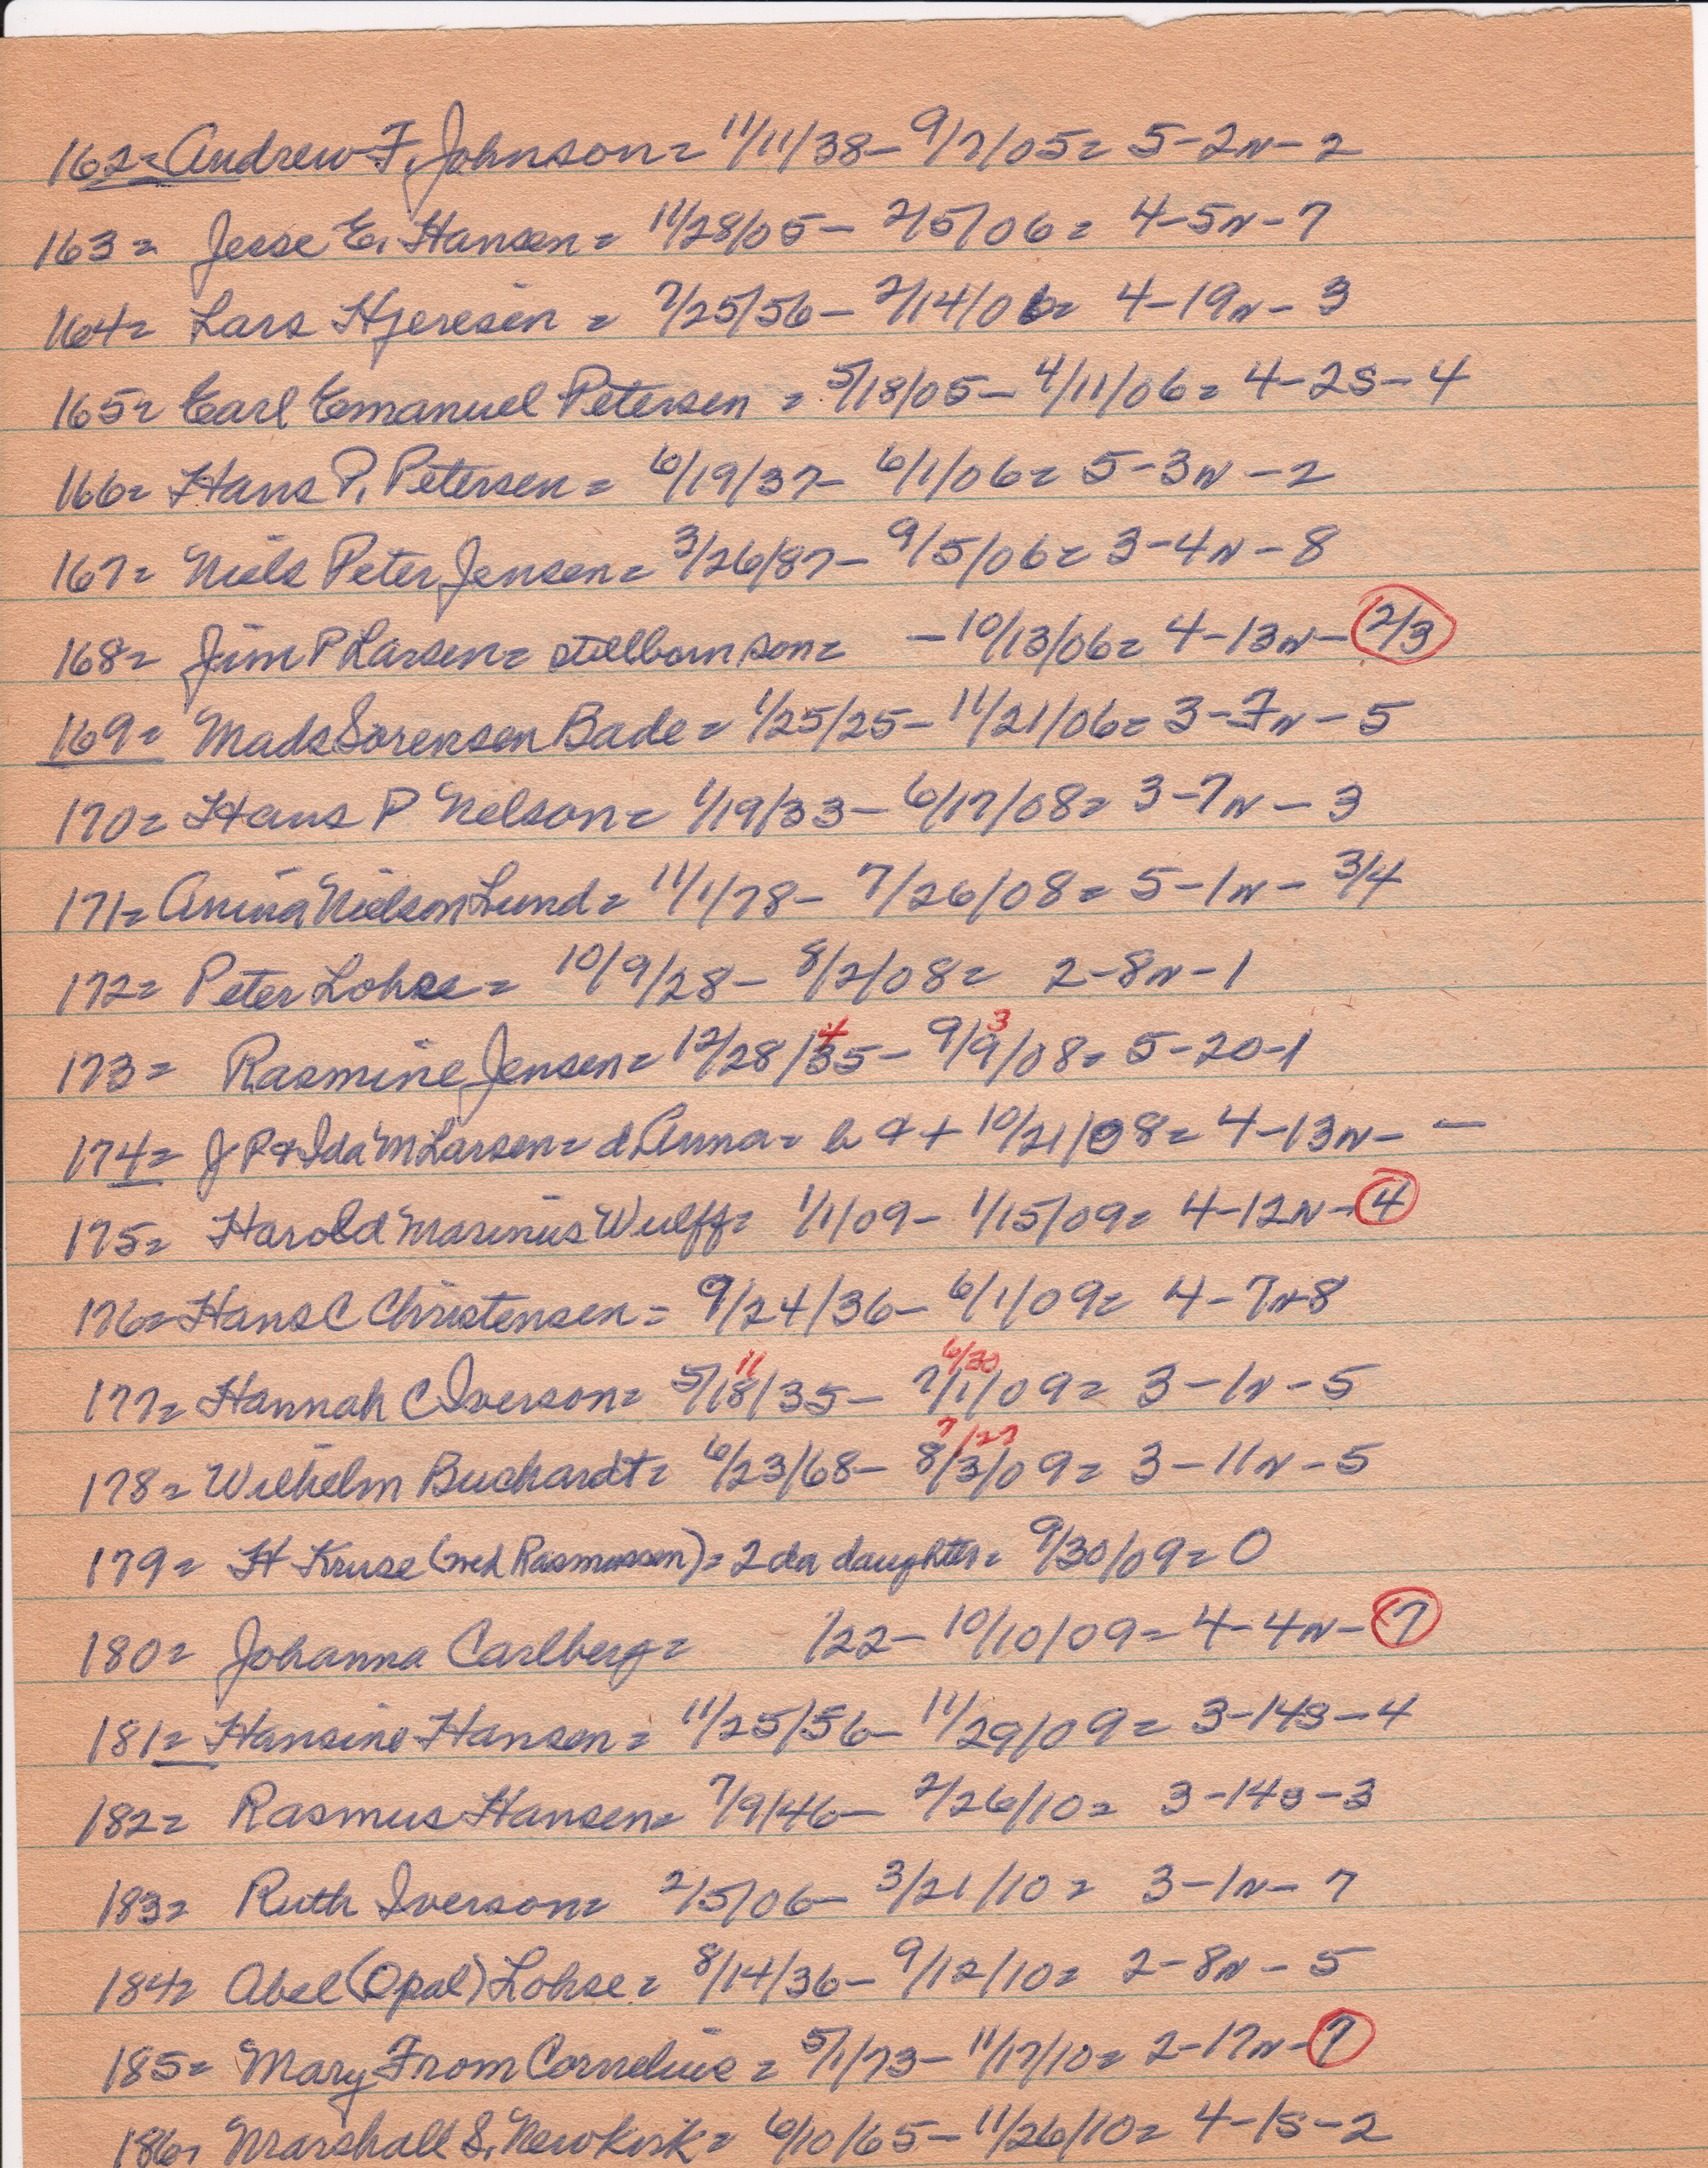 162= Andrew F. Johnson= 11/11/38- 9/7/05= 5-2N-2
163= Jesse E. Hansen= 11/28/05- 2/5/06= 4-5N-7
164= Lars Hjeresen = 7/25/56- 2/14/06= 4-19N-3
165= Earl Emanuel Petersen = 5/18/05- 4/11/06= 4-2S-4
166= Hans P. Petersen= 6/19/37- 6/1/06= 5-3N-2
167= Niels Peter Jensen= 3/26/87- 9/5/06= 3-4N-8
168= Jim P Larsen= stillborn son= -10/13/06= 4-13N-2/3
169= Mads Sorensen Bade= 1/25/25- 11/21/06= 3-7N-5
170= Hans P Nelson= 1/19/33- 6/17/08= 3-7N-3
171= Anina Nielson Lund= 11/1/78- 7/26/08= 5-1N-3/4
172= Peter Lohse= 10/9/28- 8/2/08= 2-8N-1
4 3
173= Rasmine Jensen= 12/28/35- 9/9/08= 5-20-1
174= J P & Ida M Larsen= d Anna= b & + 10/21/08= 4-13N- -
175= Harold Marinus Wulff= 1/1/09- 1/15/09= 4-12N-4
176= Hans C Christensen= 9/24/36- 6/1/09= 4-7N-8
11 6/30
177= Hannah C Iverson= 5/18/35- 7/1/09= 3-1N-5
7/27
178= Wilhelm Buchardt= 6/23/68- 8/3/09= 3-11N-5
179= H Kruse (med Rasmussen)= 2 da daughter= 9/30/09= 0
180= Johanna Carlberg= /22- 10/10/09= 4-4N-7
181= Hansine Hansen= 11/25/56- 11/29/09= 3-14S-4
182= Rasmus Hansen= 7/9/46- 2/26/10= 3-14S-3
183= Ruth Iverson= 2/5/06- 3/21/10= 3-1N-7
184= Abel (Opal) Lohse= 8/14/36- 9/12/10= 2-8N-5
185= Mary From Cornelius= 5/1/73- 11/17/10= 2-17N-7
186= Marshall S. Newkirk= 6/10/65- 11/26/10= 4-1S-2